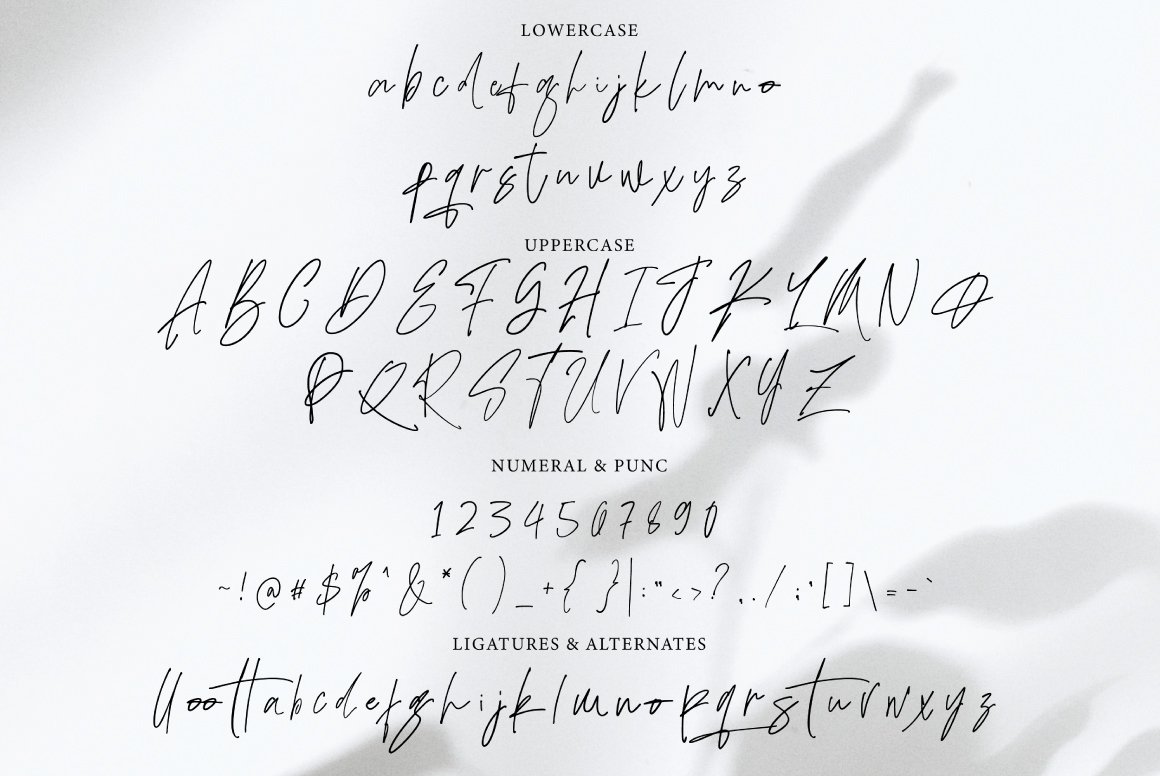 LOWERCASE
abcdefghijklmno
pqrstuvwxyz
UPPERCASE
ABCDEFGHIJKLMNO
PQRSTUVWXYZ
NUMERAL & PUNC
1234567890
~!@#$%^&*()_+{}|:"<>?,./;'[]\=-`
LIGATURES & ALTERNATES
lloottabcdefghijklmnopqrstuvwxyz